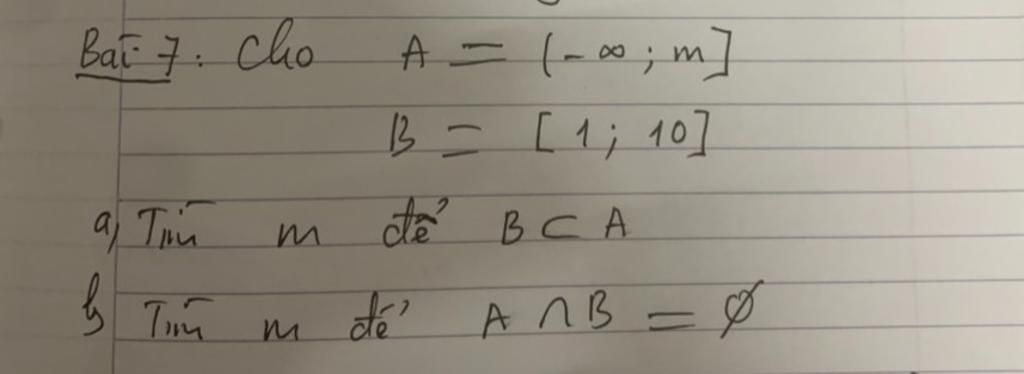 Bài 7: Cho A = (-∞; m]
B = [1; 10]
a) Tìm m để B ⊂ A
b) Tìm m để A ∩ B = ∅